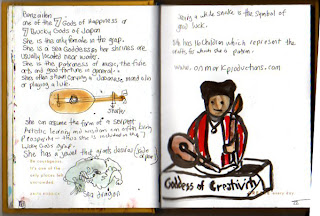 Benzaiten
one of the 7 Gods of Happiness or
7 Lucky Gods of Japan
She is the only female in the group.
She is a sea Goddess so her shrines are
usually located near water.
She is the patroness of music, the fine
arts, and good fortune in general.
She often is shown carrying a Japanese mandolin
or playing a lute.
She can assume the form of a serpent
Artistic learning and wisdom can often bring
prosperity - thus she is included in the 7
Lucky Gods group
She has a jewel that grants desires
Be courageous.
It's one of the
only places left
uncrowded.
Sea dragon
seeing a white snake is the symbol of
good luck.
She has 16 children which represent the
of which she is patron.
www.onmarkproductions.com
Goddess of Creativity